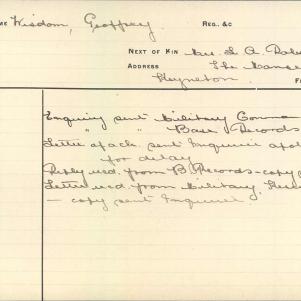 ME Wisdom, Geoffrey REG. &C
NEXT OF KIN Mrs L. A.
ADDRESS The Manse
Keyneton
Enquiry sent Military Comma
" " Base Records
Letter of ack. sent Enquirer apol
for delay
Reply recd. from B. Records - copy
Letter recd. from Military
- copy sent Enquirer